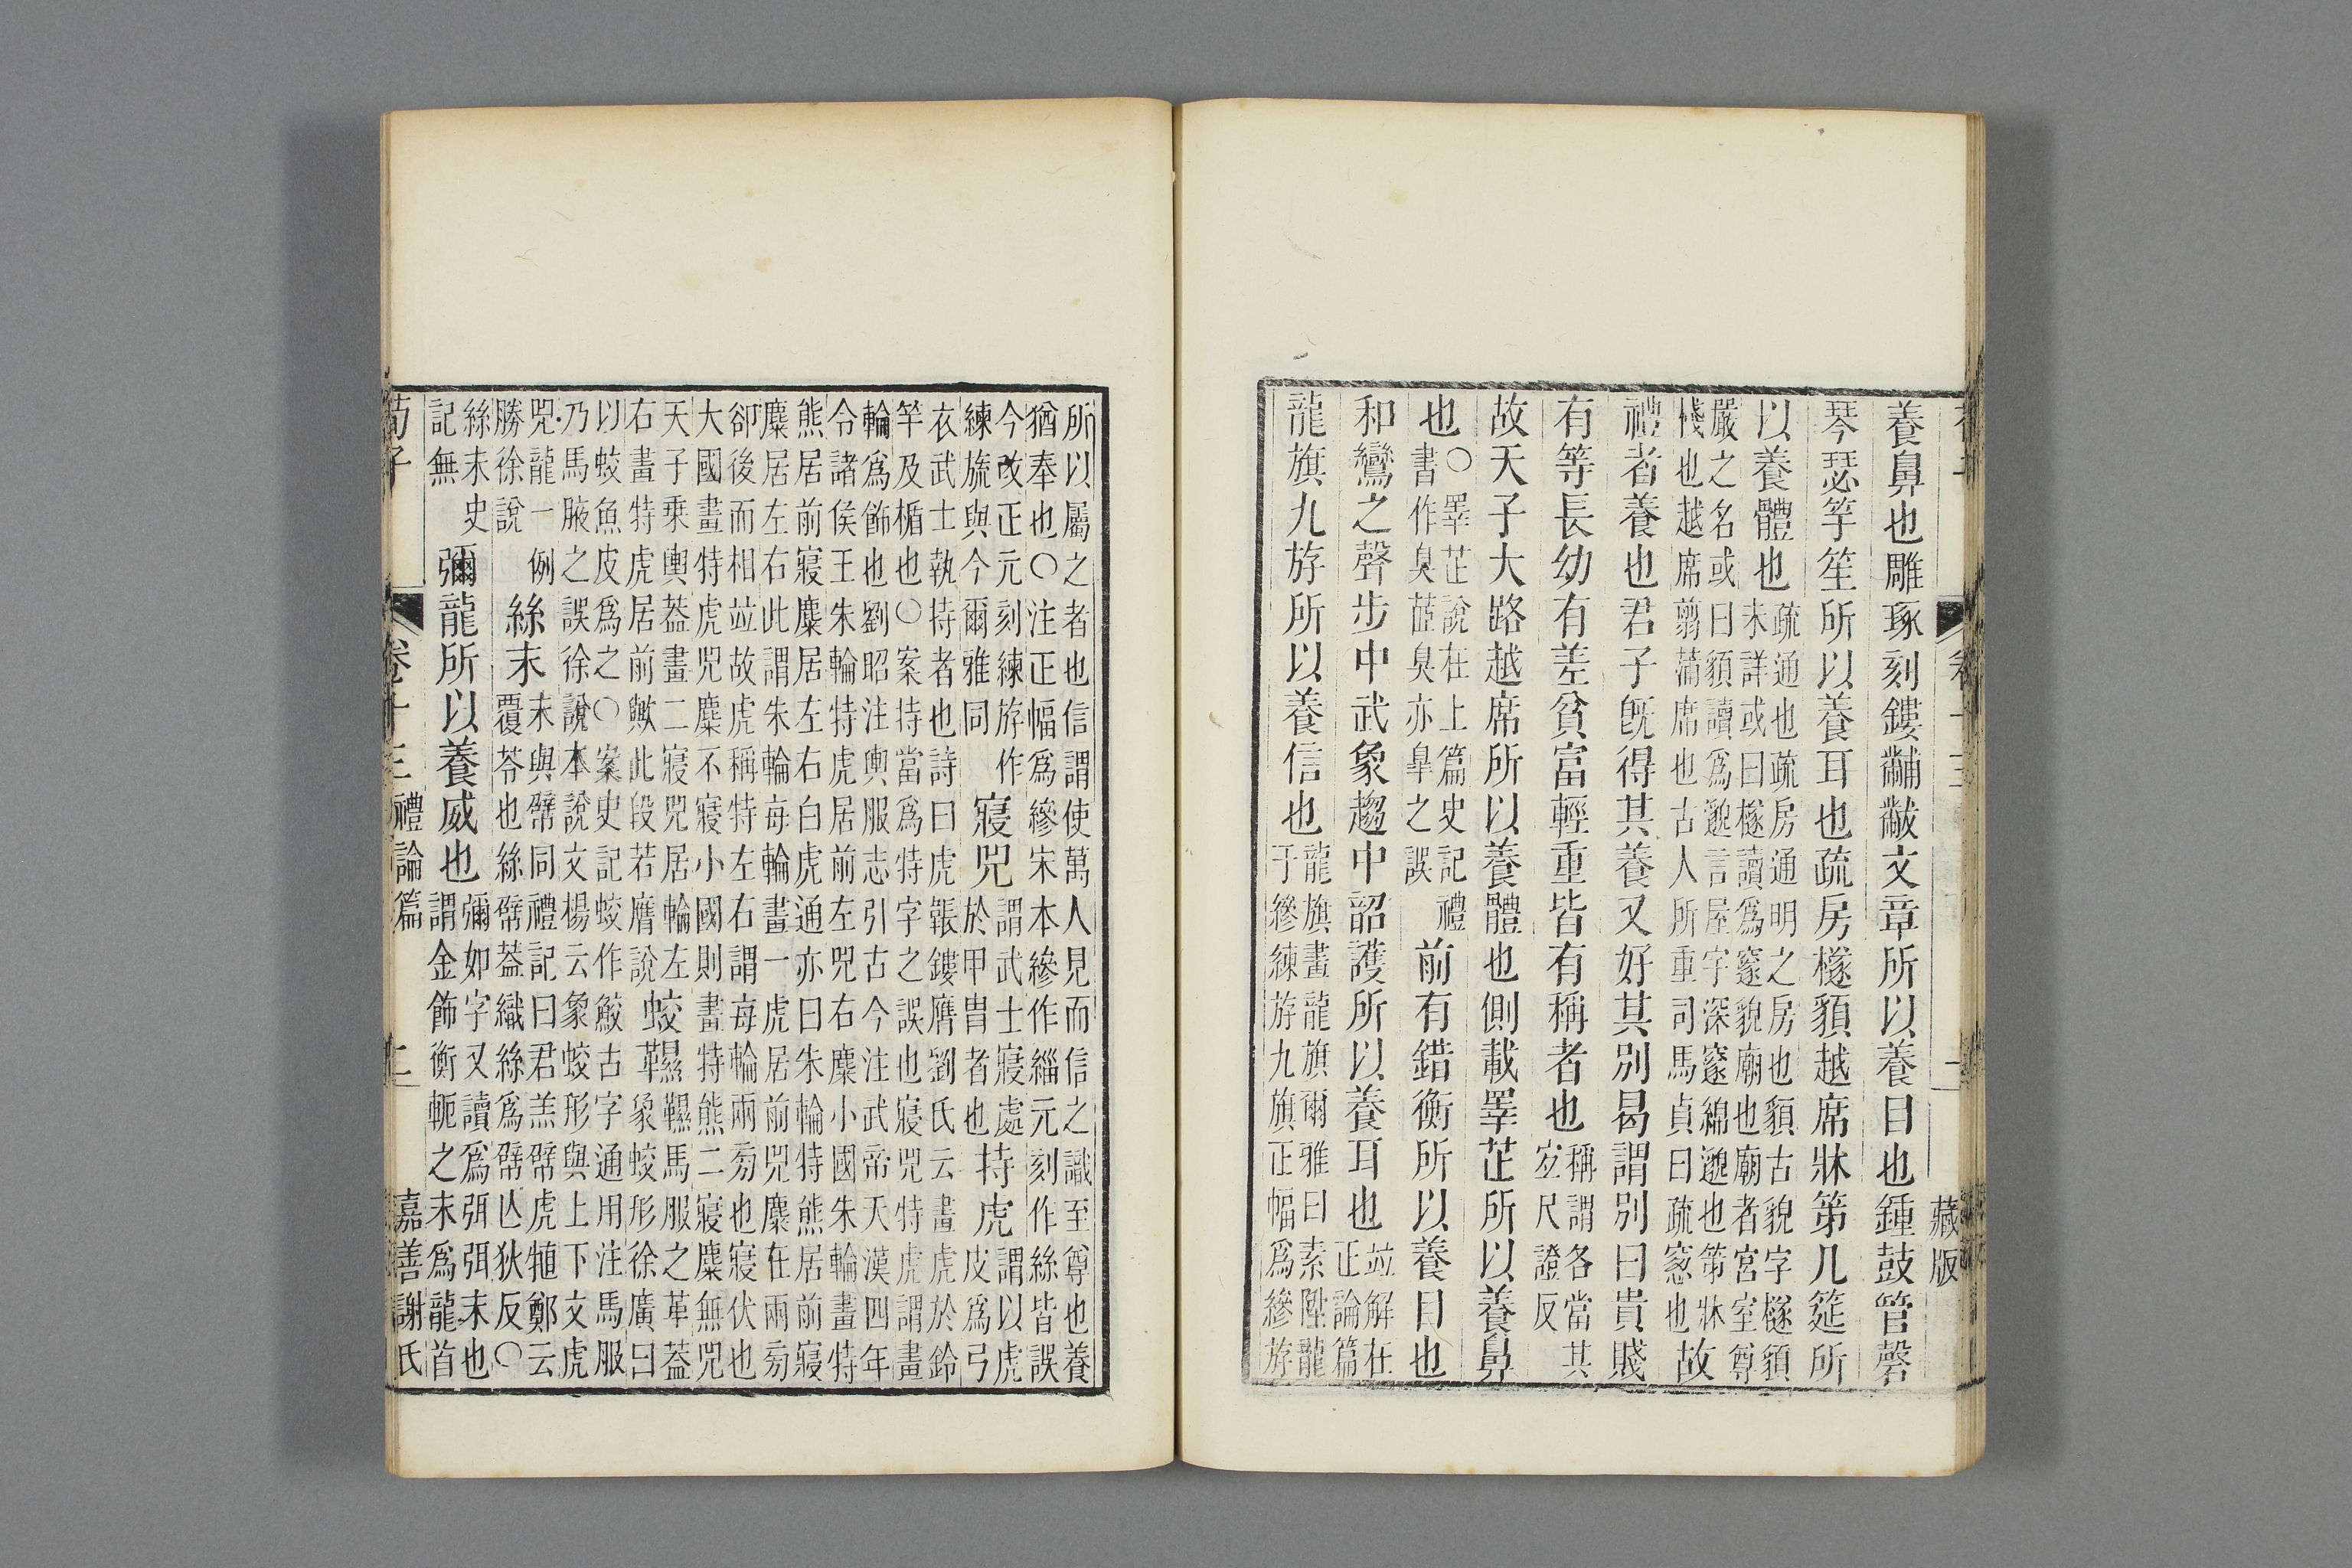 藏版
養鼻也雕琢刻鏤黼黻文章所以養目也鍾鼓管磬
琴瑟竽笙所以養耳也疏房檖䫉越席牀第几筵所
以養體也疏通也疏房通明之房也䫉古貌字檖䫉未詳或曰檖讀爲邃貌廟也廟者宮室尊
嚴之名或曰䫉讀爲邈言屋宇深邃綿邈也第牀棧也越席翦蒲席也古人所重司馬貞曰疏窻也故
禮者養也君子旣得其養又好其別曷謂別曰貴賤
有等長幼有差貧富輕重皆有稱者也稱謂各當其宐尺證反
故天子大路越席所以養體也側載睪芷所以養鼻
也○睪芷說在上篇史記禮書作臭茝臭亦皐之誤前有錯衡所以養目也
和鸞之聲步中武象趨中韶護所以養耳也竝解在正論篇
龍旗九斿所以養信也龍旗畫龍旗爾雅曰素陞龍于縿練斿九旗正幅爲縿斿
所以屬之者也信謂使萬人見而信之識至尊也養猶奉也○注正幅爲縿宋本縿作緇元刻作絲皆誤
今改正元刻練斿作練旒與今爾雅同寢兕謂武士寢處於甲胄者也持虎謂以虎皮爲弓
衣武士執持者也詩曰虎韔鏤膺劉氏云畫虎於鈴竿及楯也○案持當爲特字之誤也寢兕特虎謂畫
輪爲飾也劉昭注輿服志引古今注武帝天漢四年令諸侯王朱輪特虎居前左兕右麋小國朱輪畫特
熊居前寢麋居左右白虎通亦曰朱輪特熊居前寢麋居左右此謂朱輪每輪畫一虎居前兕麋在兩旁
卻後而相竝故虎稱特左右謂每輪兩旁也寢伏也大國畫特虎兕麋不寢小國則畫特熊二寢麋無兕
天子乘輿葢畫二寢兕居輪左右畫特虎居前歟此段若膺說蛟韅韅馬服之革葢象蛟形徐廣曰
以蛟魚皮爲之○案史記蛟作鮫古字通用注馬服乃馬腋之誤徐說本說文楊云象蛟形與上下文虎
兕龍一例勝徐說絲末末與幦同禮記曰君羔幦虎犆鄭云覆苓也絲幦葢織絲爲幦亾狄反○
絲末史記無彌龍所以養威也彌如字又讀爲弭弭末也謂金飾衡軛之末爲龍首
荀子 卷十三 禮論篇 二 嘉善謝氏